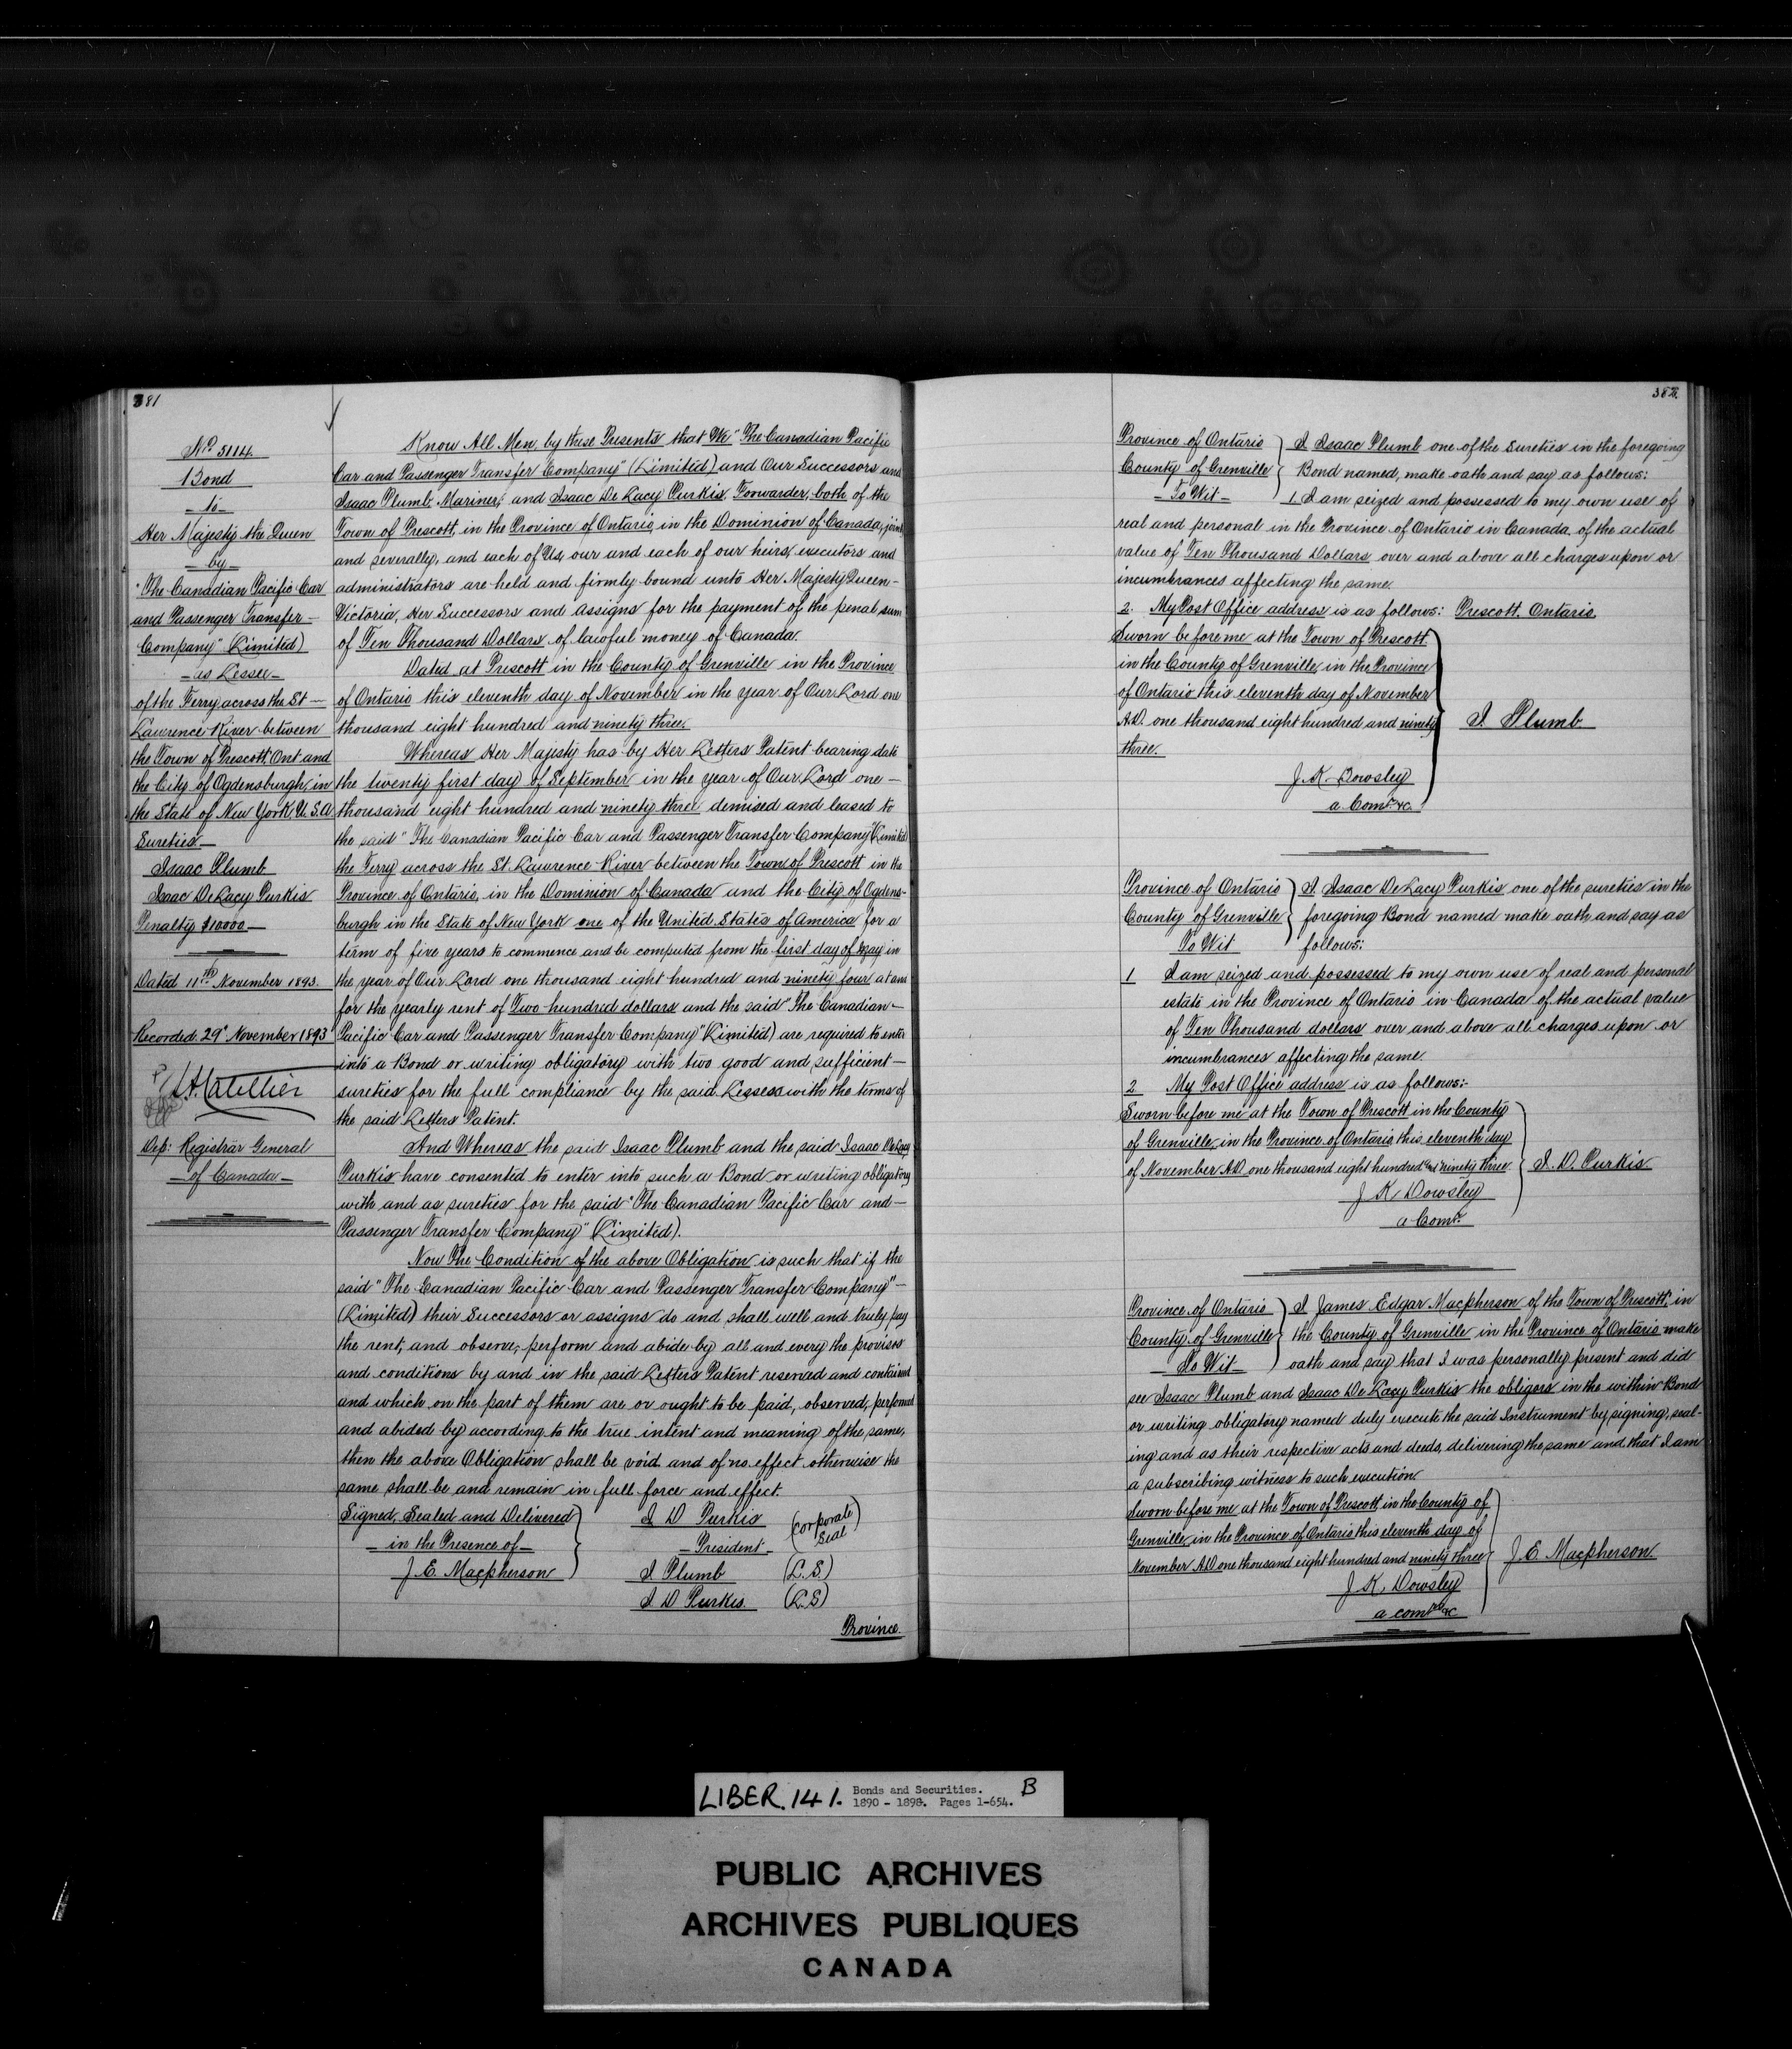 381
No. 5114.
Bond
to
Her Majesty the Queen
by
"The Canadian Pacific Car
and Passenger Transfer
Company" (Limited)
as Lessee
of the Ferry across the St
Lawrence River between
the Town of Prescott, Ont and
the City of Ogdensburgh, in
the State of New York, U.S.A
Sureties
Isaac Plumb
Isaac De Lacy Purkis
Penalty $10000
Dated 11th November 1893.
Recorded 29" November 1893
Dep: Registrar General
of Canada
Know All Men, by these Presents that We "The Canadian Pacific
Car and Passenger Transfer Company" (Limited) and Our Successors and
Isaac Plumb, Mariner, and Isaac De Lacy Purkis, Forwarder, both of the
Town of Prescott, in the Province of Ontario, in the Dominion of Canada,
and severally, and each of Us, our and each of our heirs, executors and
administrators are held and firmly bound unto Her Majesty Queen
Victoria, Her Successors and assigns for the payment of the penal sum
of Ten Thousand Dollars of lawful money of Canada.
Dated at Prescott in the County of Grenville in the Province
of Ontario this eleventh day of November in the year of Our Lord one
thousand eight hundred and ninety three.
Whereas Her Majesty has by Her Letters Patent bearing date
the twenty first day of September in the year of Our Lord one
thousand eight hundred and ninety three demised and leased to
the said "The Canadian Pacific Car and Passenger Transfer Company" (Limited
the Ferry across the St. Lawrence River between the Town of Prescott in the
Province of Ontario, in the Dominion of Canada and the City of Ogdens-
burgh in the State of New York one of the United States of America for a
term of five years to commence and be computed from the first day of May in
the year of Our Lord one thousand eight hundred and ninety four at and
for the yearly rent of Two hundred dollars and the said "The Canadian
Pacific Car and Passenger Transfer Company" (Limited) are required to enter
into a Bond or writing obligatory with two good and sufficient
sureties for the full compliance by the said Lessees with the terms of
the said Letters Patent.
And Whereas the said Isaac Plumb and the said Isaac De Lacy
Purkis have consented to enter into such a Bond or writing obligatory
with and as sureties for the said "The Canadian Pacific Car and
Passenger Transfer Company" (Limited).
Now The Condition of the above Obligation is such that if the
said "The Canadian Pacific Car and Passenger Transfer Company"
(Limited) their Successors or assigns do and shall well and truly pay
the rent, and observe, perform and abide by all and every the provisos
and conditions by and in the said Letters Patent reserved and contained
and which on the part of them are or ought to be paid, observed, performed
and abided by according to the true intent and meaning of the same,
then the above Obligation shall be void and of no effect otherwise the
same shall be and remain in full force and effect.
Signed, Sealed and Delivered
in the Presence of
J. E. Macpherson
I D Purkis
President
(corporate Seal)
I Plumb (L.S.)
I D Purkis. (L.S)
Province.
382
Province of Ontario
County of Grenville
To Wit
I Isaac Plumb one of the Sureties in the foregoing
Bond named, make oath and say as follows:
1. I am seized and possessed to my own use of
real and personal in the Province of Ontario in Canada of the actual
value of Ten Thousand Dollars over and above all charges upon or
incumbrances affecting the same.
2. My Post Office address is as follows: Prescott, Ontario.
Sworn before me at the Town of Prescott
in the County of Grenville, in the Province
of Ontario this eleventh day of November
A.D. one thousand eight hundred and ninety
three.
I Plumb
J. K. Dowsley
a Comr. &c.
Province of Ontario
County of Grenville
To Wit
I Isaac De Lacy Purkis, one of the sureties in the
foregoing Bond named make oath and say as
follows:
1 I am seized and possessed to my own use of real and personal
estate in the Province of Ontario in Canada of the actual value
of Ten Thousand dollars over and above all charges upon or
incumbrances affecting the same.
2 My Post Office address is as follows:-
Sworn before me at the Town of Prescott in the County
of Grenville, in the Province of Ontario this eleventh day
of November A.D. one thousand eight hundred and ninety three
I. D. Purkis
J K Dowsley
a Comr.
Province of Ontario
County of Grenville
To Wit
I James Edgar Macpherson of the Town of Prescott, in
the County of Grenville in the Province of Ontario make
oath and say that I was personally present and did
see Isaac Plumb and Isaac De Lacy Purkis the obligors in the within Bond
or writing obligatory named duly execute the said Instrument by signing, seal-
ing and as their respective acts and deeds, delivering the same and that I am
a subscribing witness to such execution
Sworn before me at the Town of Prescott, in the County of
Grenville, in the Province of Ontario this eleventh day of
November A.D. one thousand eight hundred and ninety three
J. E. Macpherson
J K Dowsley
a comr &c
LIBER. 141. Bonds and Securities. B
1890 - 1898. Pages 1-654.
PUBLIC ARCHIVES
ARCHIVES PUBLIQUES
CANADA